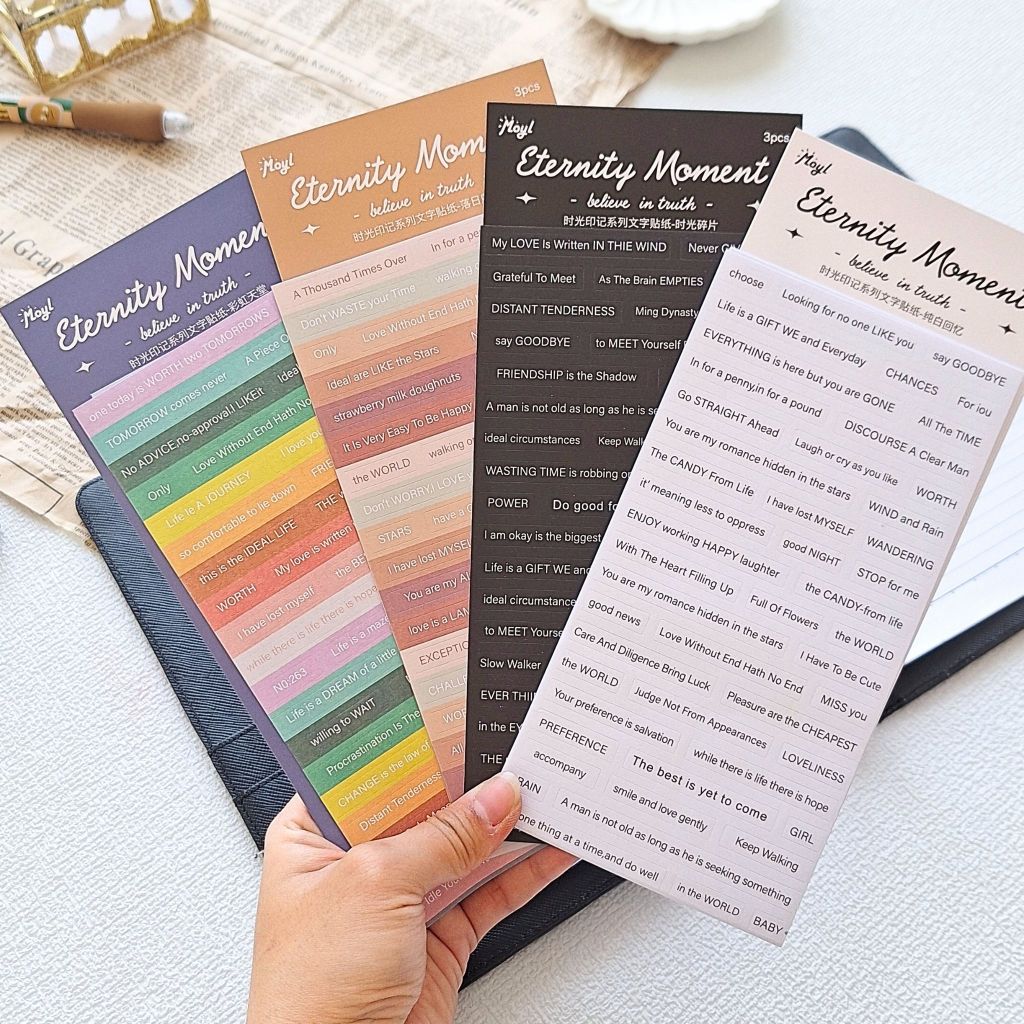 Moyl
Eternity Momen
- believe in truth -
时光印记系列文字贴纸-彩虹天堂
one today is WORTH two TOMORROWS
TOMORROW comes never A Piece O
No ADVICE,no-approval,I LIKEit Idea
Love Without End Hath No
Only I love you
Life Ie A JOURNEY FRIE
so comfortable to lie down
this is the IDEAL LIFE THE W
WORTH My love is written
I have lost myself the BE
while there is life there is hope
N0:263 Life is a maze
Life is a DREAM of a little
willing to WAIT
Procrastination Is The
CHANGE is the law of
Distant Tenderness
3pcs
Moyl
Eternity Mom
- believe in truth
时光印记系列文字贴纸-落日
In for a pe
A Thousand Times Over
Don't WASTE your Time walking
Only Love Without End Hath
Ideal are LIKE the Stars No
strawberry milk doughnuts
It Is Very Easy To Be Happy
the WORLD walking
Don't WORRY,I LOVE
STARS have a G
I have lost MYSELF
You are my Al
love is a LAM
EXCEPTION
CHALL
WOR
All
Idle You
3pcs
Moyl
Eternity Moment
- believe in truth -
时光印记系列文字贴纸-时光碎片
My LOVE Is Written IN THIE WIND Never
Grateful To Meet As The Brain EMPTIES
DISTANT TENDERNESS Ming Dynasty
say GOODBYE to MEET Yourself
FRIENDSHIP is the Shadow
A man is not old as long as he is se
ideal circumstances Keep Walk
WASTING TIME is robbing on
POWER Do good fo
I am okay is the biggest
Life is a GIFT WE and
ideal circumstance
to MEET Yourse
Slow Walker
EVER THI
in the EY
THE
Moyl
Eternity Moment
- believe in truth -
时光印记系列文字贴纸-纯白回忆
choose Looking for no one LIKE you say GOODBYE
Life is a GIFT WE and Everyday CHANCES For iou
EVERYTHING is here but you are GONE All The TIME
In for a penny,in for a pound DISCOURSE A Clear Man
Go STRAIGHT Ahead Laugh or cry as you like WORTH
You are my romance hidden in the stars WIND and Rain
The CANDY From Life I have lost MYSELF WANDERING
it' meaning less to oppress good NIGHT STOP for me
ENJOY working HAPPY laughter the CANDY-from life
With The Heart Filling Up Full Of Flowers the WORLD
You are my romance hidden in the stars I Have To Be Cute
good news Love Without End Hath No End MISS you
Care And Diligence Bring Luck Pleasure are the CHEAPEST
the WORLD Judge Not From Appearances LOVELINESS
Your preference is salvation while there is life there is hope
PREFERENCE The best is yet to come GIRL
accompany smile and love gently Keep Walking
RAIN A man is not old as long as he is seeking something
one thing at a time,and do well in the WORLD BABY